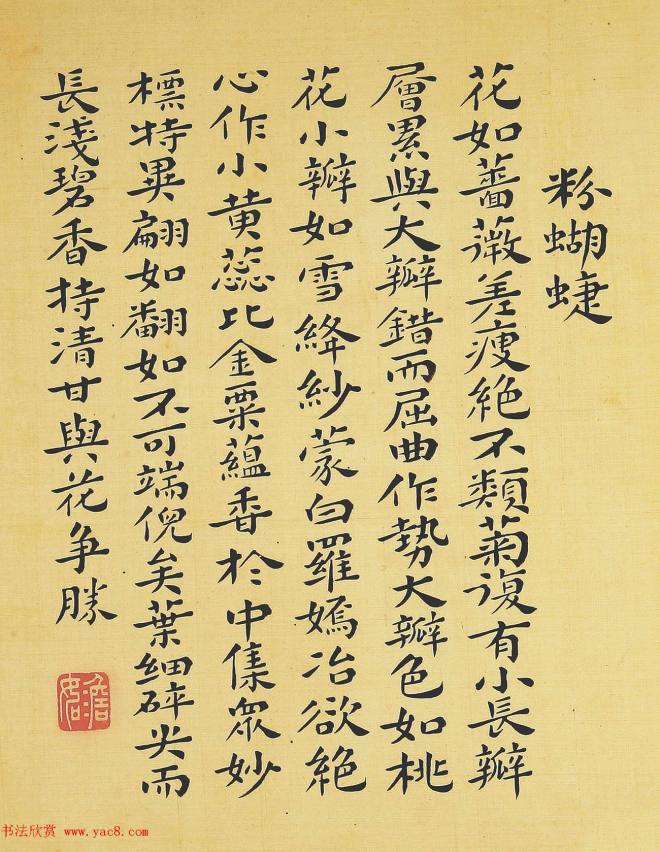 粉蝴蜨
花如薔薇差瘦絕不類菊復有小長瓣
層累與大瓣錯而屈曲作勢大瓣色如桃
花小瓣如雪絳紗蒙白羅嫣冶欲絕
心作小黄蕊比金粟藴香於中集眾妙
標特異翩如翻如不可端倪矣葉細碎尖而
長淺碧香持清甘與花争勝
书法欣赏 www.yac8.com